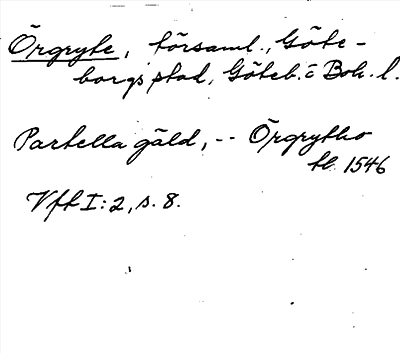 Örgryte, församl., Göte-
borgs stad, Göteb. o Boh. l.
Partella gäld, -- Örgrytho
1546
Vfk I: 2, s. 8.